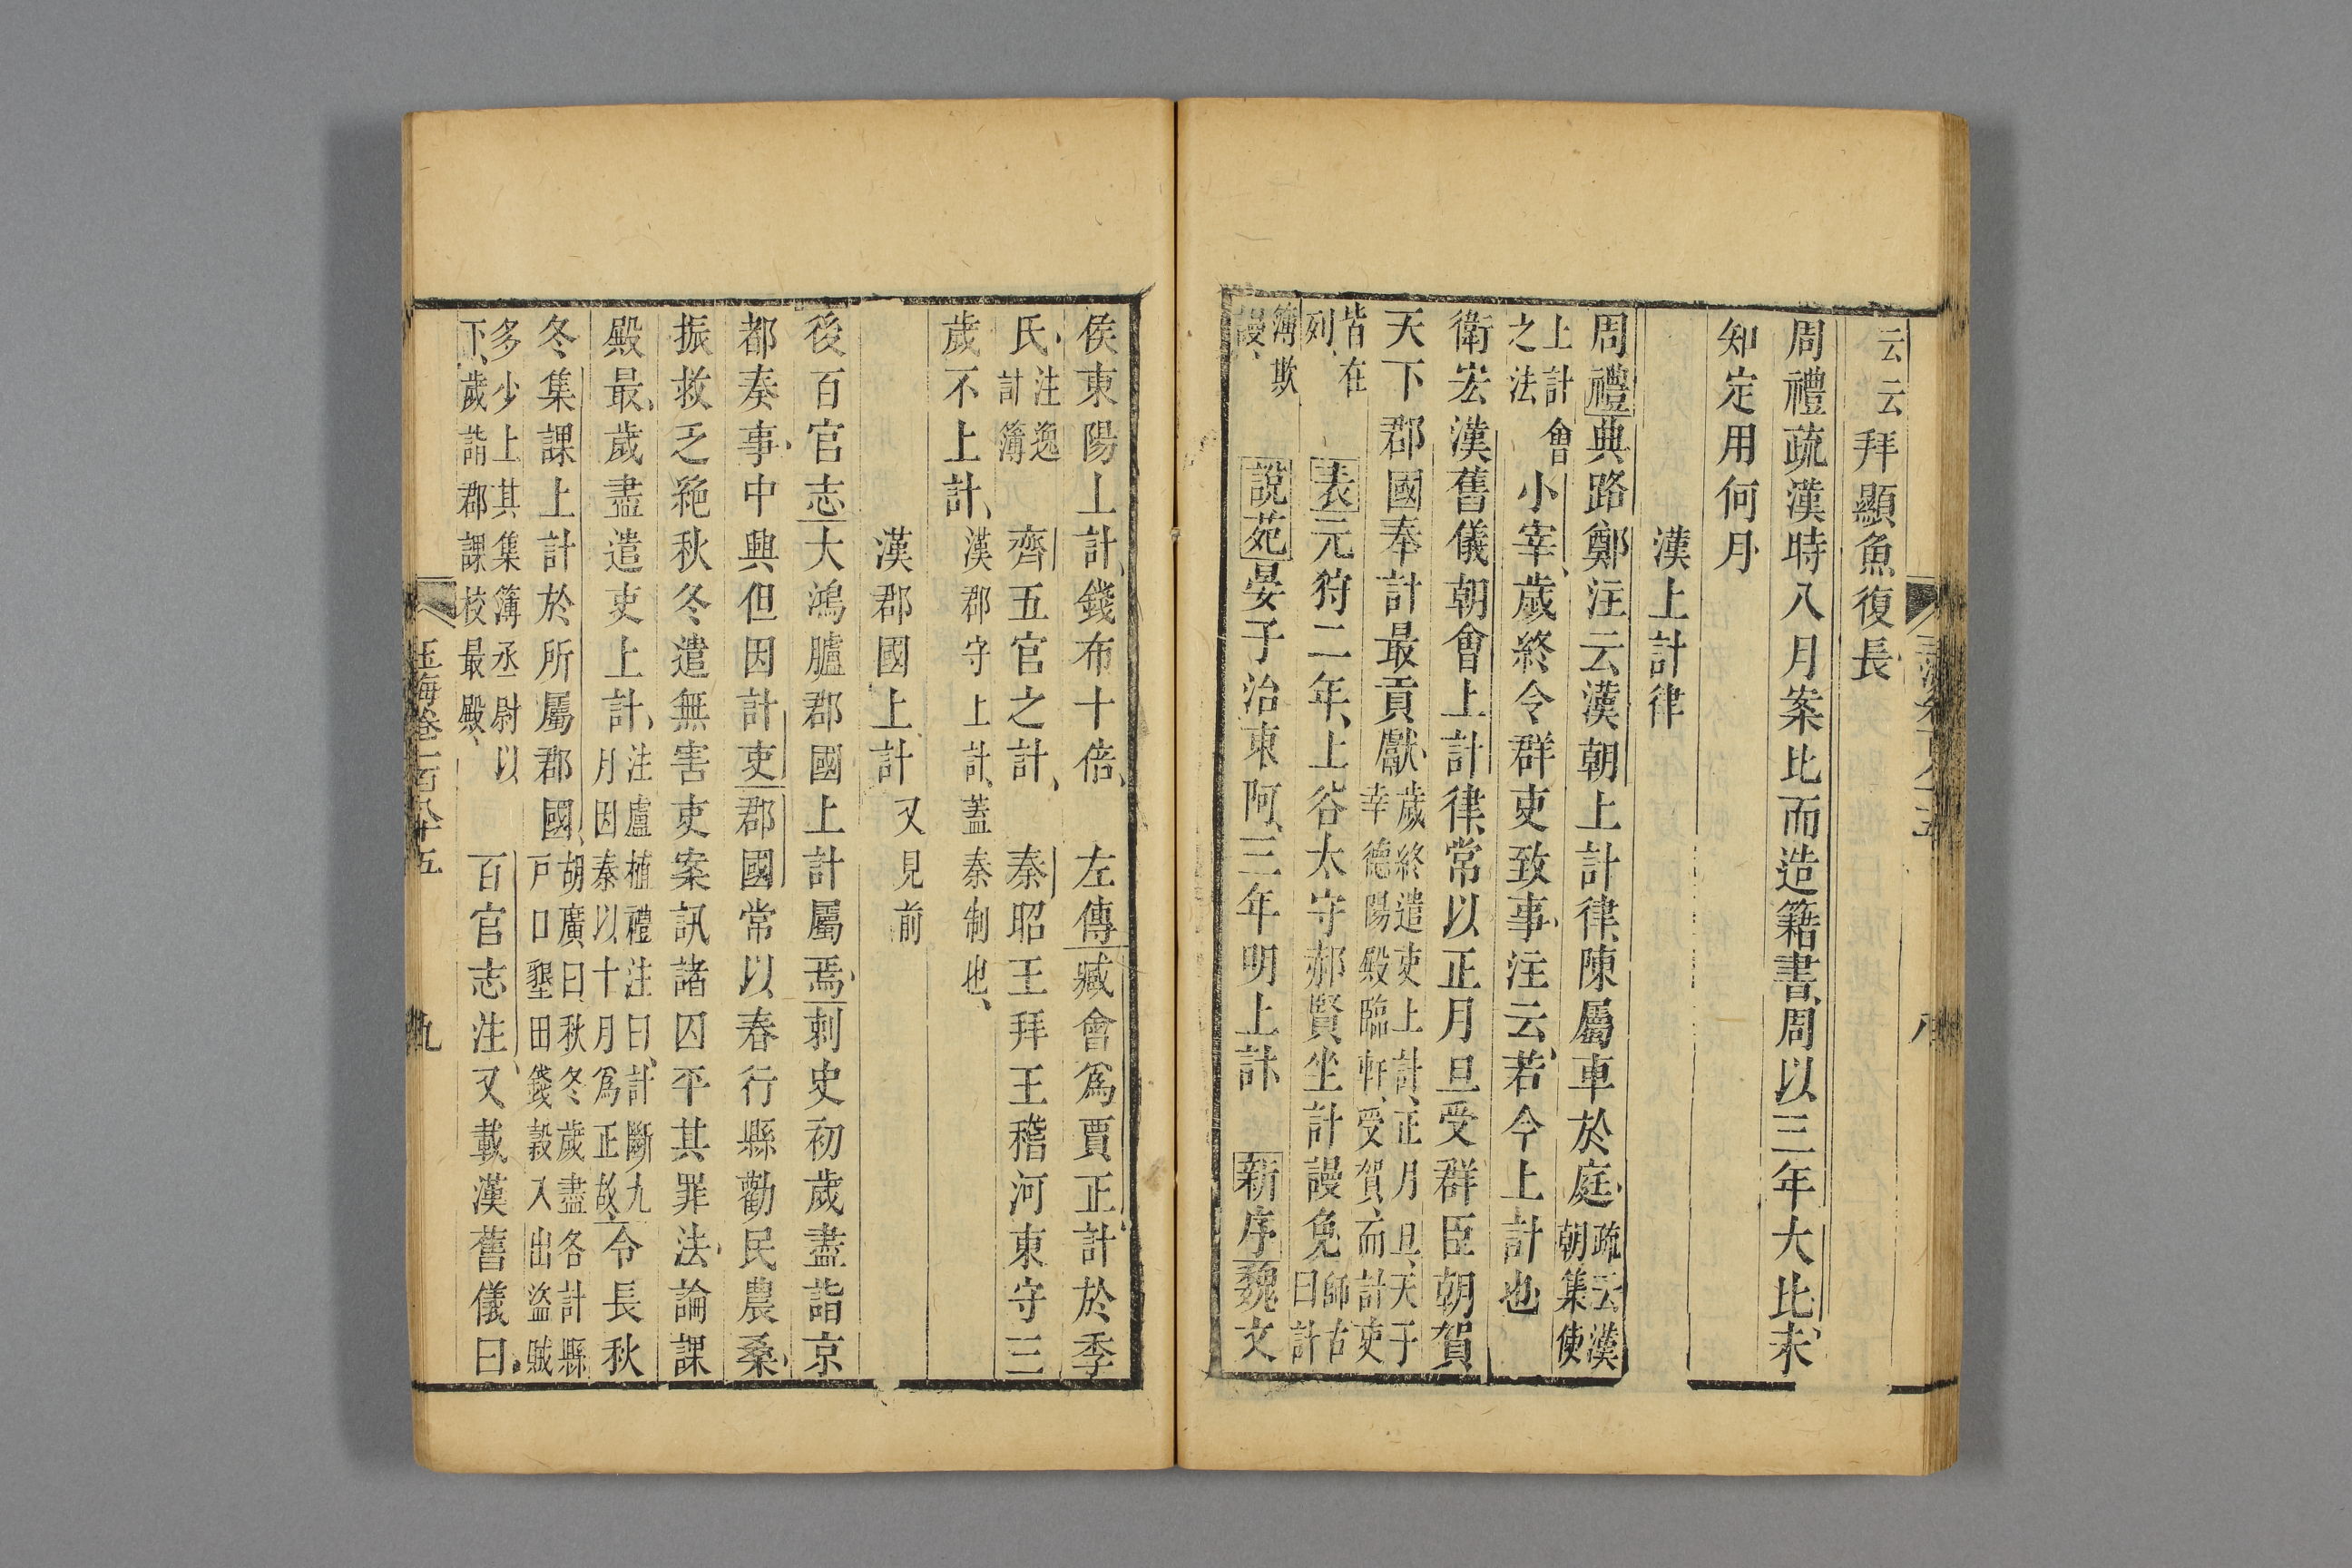 云云拜顯魚復長
周禮疏漢時八月案比而造籍書周以三年大比未
知定用何月
漢上計律
周禮典路鄭注云漢朝上計律陳屬車於庭疏云漢朝集使
上計之法會小宰歲終令群吏致事注云若今上計也
衛宏漢舊儀朝會上計律常以正月旦受群臣朝賀
天下郡國奉計最貢獻歲終遣吏上計正月旦天子幸德陽殿臨軒受賀而計吏
皆在列表元狩二年上谷太守郝賢坐計謾免師古曰計
簿欺謾說苑晏子治東阿三年明上計新序魏文
玉海卷百八十五
八
侯東陽上計錢布十倍左傳臧會爲賈正計於季
氏注逸計簿齊五官之計秦昭王拜王稽河東守三
歲不上計漢郡守上計蓋秦制也
漢郡國上計又見前
後百官志大鴻臚郡國上計屬焉刺史初歲盡詣京
都奏事中興但因計吏郡國常以春行縣勸民農桑
振救乏絶秋冬遣無害吏案訊諸囚平其罪法論課
殿最歲盡遣吏上計注盧植禮注曰計斷九月因秦以十月爲正故令長秋
冬集課上計於所屬郡國胡廣曰秋冬歲盡各計縣戸口墾田錢穀入出盜賊
多少上其集簿丞尉以下歲詣郡課校最殿百官志注又載漢舊儀曰
玉海卷一百八十五
九